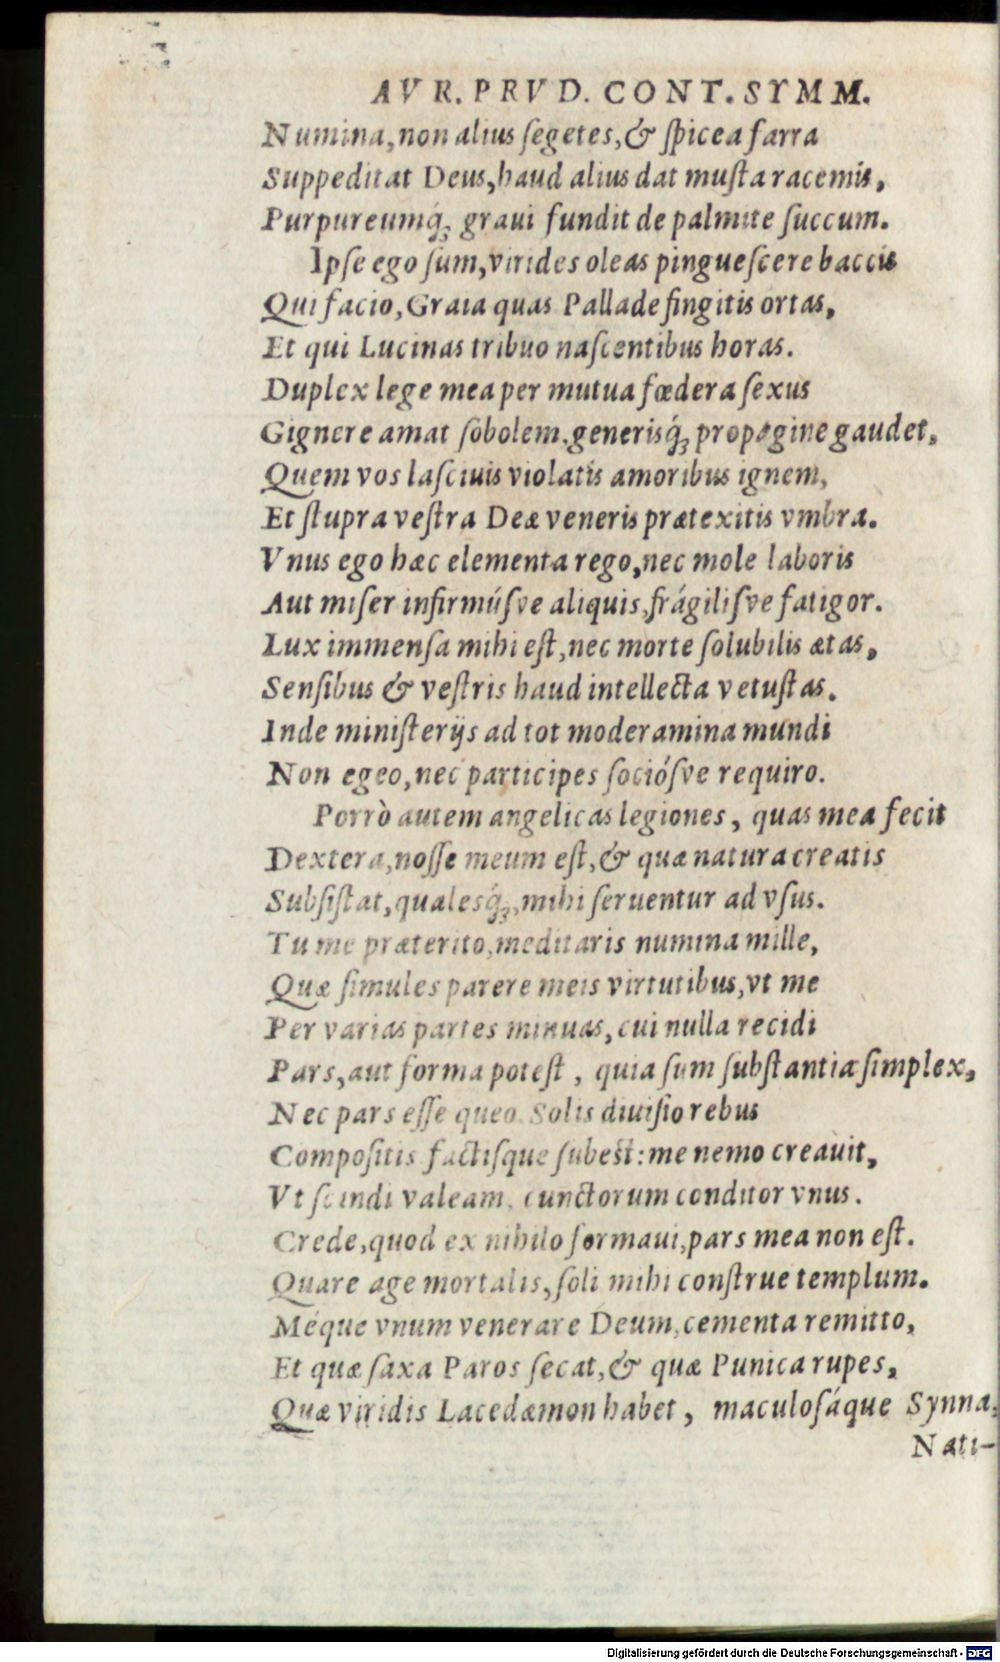 AVR. PRVD. CONT. SYMM.
Numina, non alius ſegetes, & ſpicea farra
Suppeditat Deus, haud alius dat muſta racemis,
Purpureumq́; graui fundit de palmite ſuccum.
Ipſe ego ſum, virides oleas pingueſcere baccis
Qui facio, Graia quas Pallade fingitis ortas,
Et qui Lucinas tribuo naſcentibus horas.
Duplex lege mea per mutua fœdera ſexus
Gignere amat ſobolem, generisq́; propagine gaudet,
Quem vos laſciuis violatis amoribus ignem,
Et ſtupra veſtra Deæ veneris prætexitis vmbra.
Vnus ego hæc elementa rego, nec mole laboris
Aut miſer infirmúſve aliquis, frágiliſve fatigor.
Lux immenſa mihi eſt, nec morte ſolubilis ætas,
Senſibus & veſtris haud intellecta vetuſtas.
Inde miniſterijs ad tot moderamina mundi
Non egeo, nec participes ſocióſve requiro.
Porrò autem angelicas legiones, quas mea fecit
Dextera, noſſe meum eſt, & quæ natura creatis
Subſiſtat, qualesq́;, mihi ſeruentur ad vſus.
Tu me præterito, meditaris numina mille,
Quæ ſimules parere meis virtutibus, vt me
Per varias partes minuas, cui nulla recidi
Pars, aut forma poteſt, quia ſum ſubſtantia ſimplex,
Nec pars eſſe queo. Solis diuiſio rebus
Compoſitis factiſque ſubeſt: me nemo creauit,
Vt ſcindi valeam, cunctorum conditor vnus.
Crede, quod ex nihilo formaui, pars mea non eſt.
Quare age mortalis, ſoli mihi conſtrue templum.
Méque vnum venerare Deum, cementa remitto,
Et quæ ſaxa Paros ſecat, & quæ Punica rupes,
Quæ viridis Lacedæmon habet, maculoſáque Synna,
Nati-
Digitalisierung gefördert durch die Deutsche Forschungsgemeinschaft - DFG